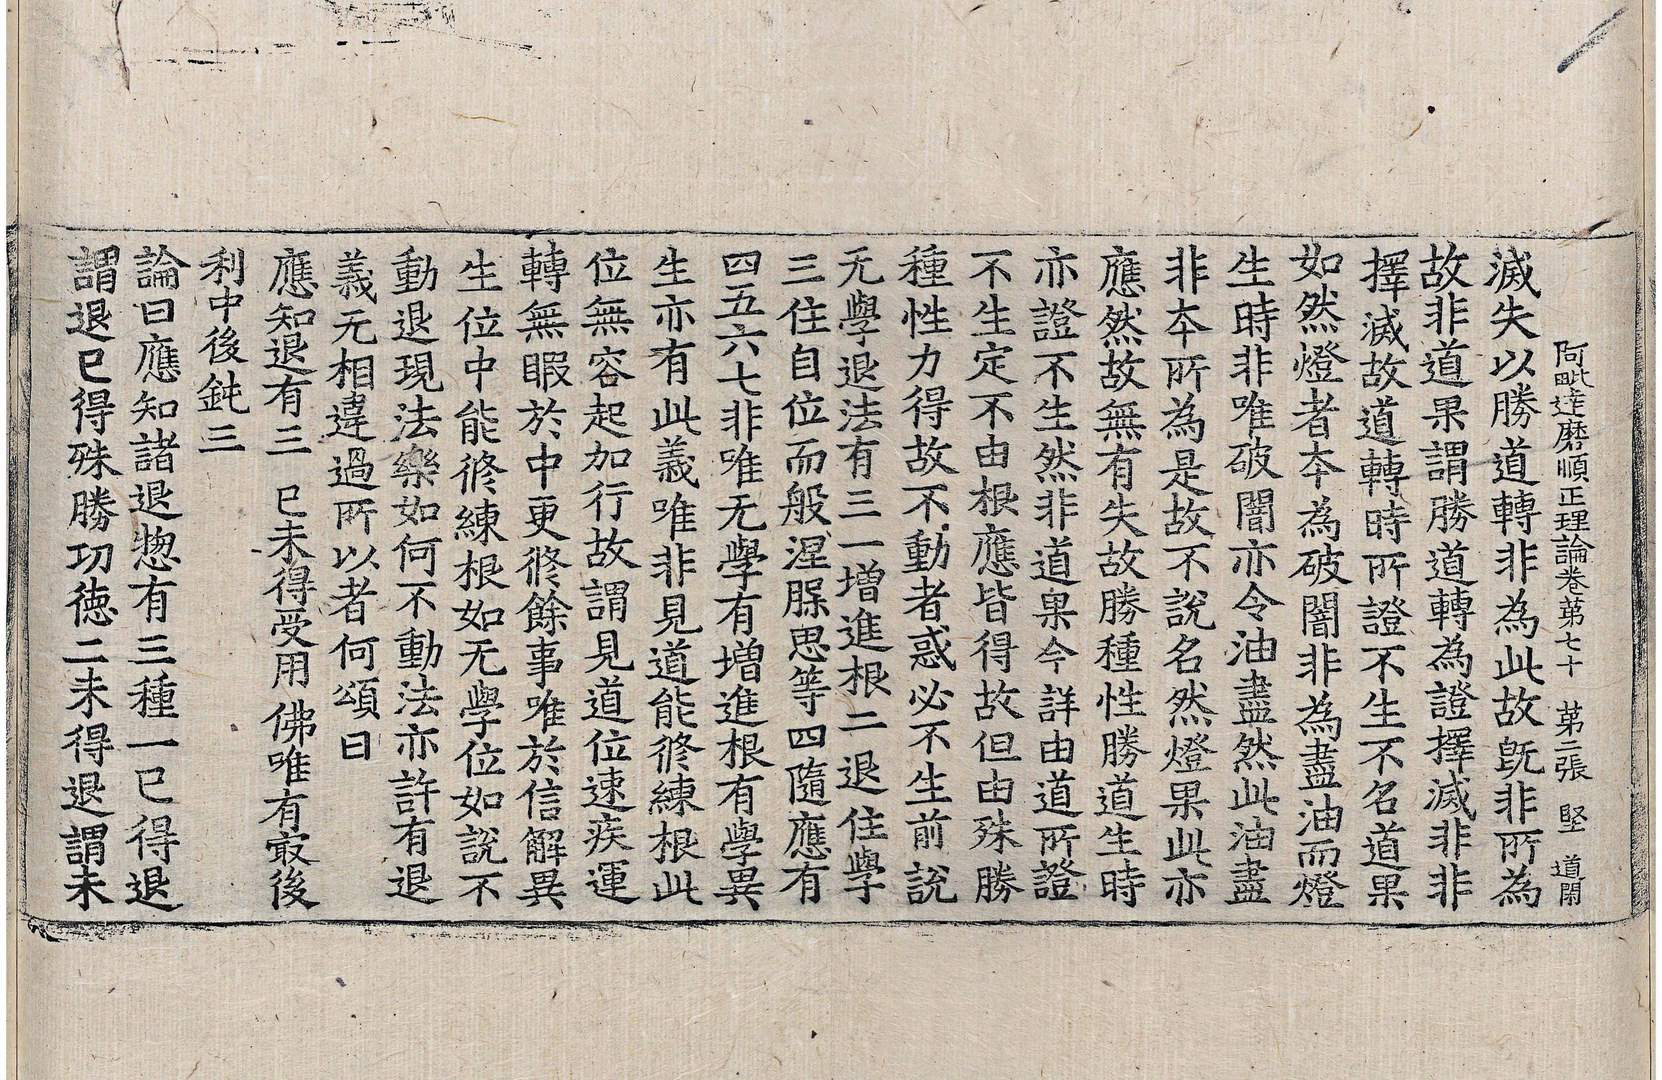 阿毗達磨順正理論卷第七十 第二張 堅 道閑
滅失以勝道轉非為此故旣非所為
故非道果謂勝道轉為證擇滅非非
擇滅故道轉時所證不生不名道果
如然燈者夲為破闇非為盡油而燈
生時非唯破闇亦令油盡然此油盡
非夲所為是故不說名然燈果此亦
應然故無有失故勝種性勝道生時
亦證不生然非道果今詳由道所證
不生定不由根應皆得故但由殊勝
種性力得故不動者惑必不生前說
无學退法有三一增進根二退住學
三住自位而般涅腺思等四隨應有
四五六七非唯无學有增進根有學異
生亦有此義唯非見道能修練根此
位無容起加行故謂見道位速疾運
轉無暇於中更修餘事唯於信解異
生位中能修練根如无學位如說不
動退現法樂如何不動法亦許有退
義无相違過所以者何頌曰
應知退有三 已未得受用 佛唯有最後
利中後鈍三
論曰應知諸退揔有三種一已得退
謂退已得殊勝功徳二未得退謂未